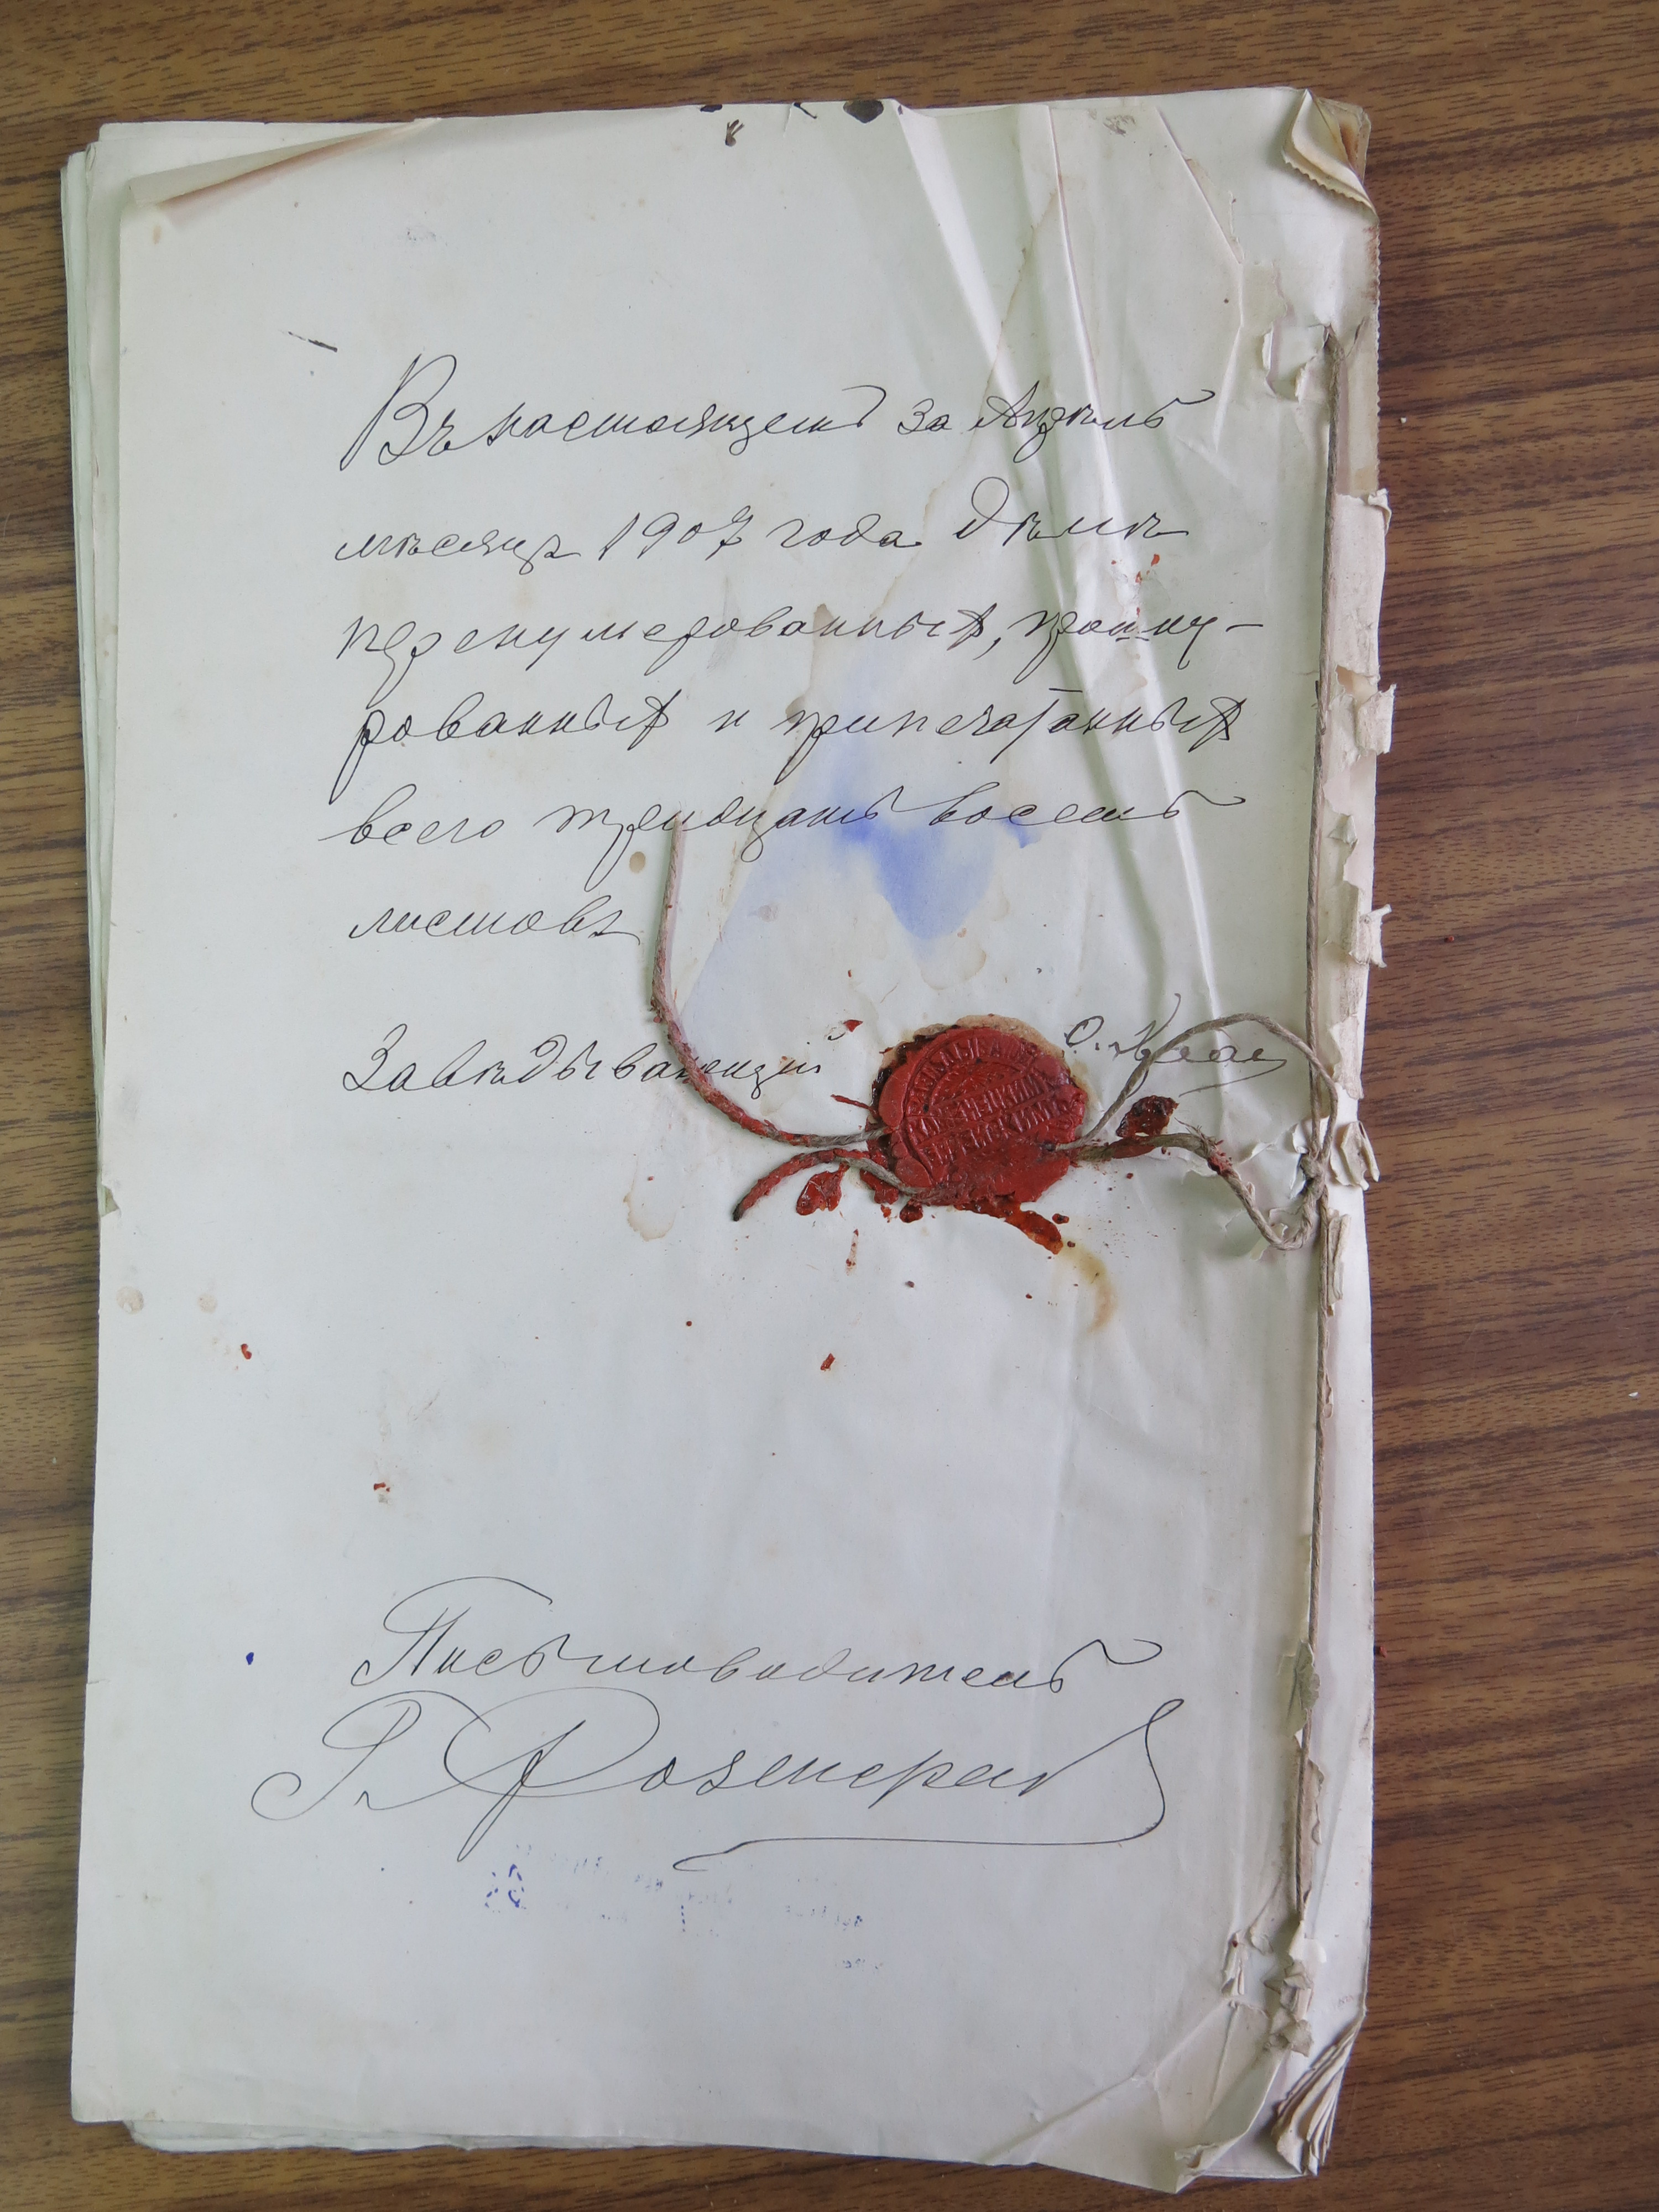 Въ настоящемъ за Апрѣль
мѣсяцъ 1907 года дѣлѣ
перенумерованныхъ, прошну-
рованныхъ и припечатанныхъ
всего тридцать восемь
листовъ
Завѣдывающій
Письмоводитель